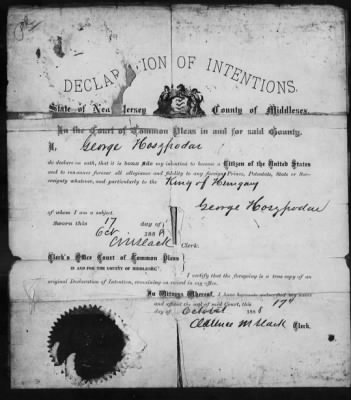 DECLARATION OF INTENTIONS.
State of New Jersey County of Middlesex.
In the Court of Common Pleas in and for said County.
I, George Hoszpodar
do declare on oath, that it is bona fide my intention to become a Citizen of the United States
and to renounce forever all allegiance and fidelity to any foreign Prince, Potentate, State or Sov-
ereignty whatever, and particularly to the King of Hungary
George Hoszpodar
of whom I am a subject.
Sworn this 17 day of
Oct 188
Clerk.
Clerk's Office Court of Common Pleas
IN AND FOR THE COUNTY OF MIDDLESEX.
I certify that the foregoing is a true copy of an
original Declaration of Intention, remaining on record in my office.
In Witness Whereof, I have hereunto subscribed my name
and affixed the seal of said Court, this 17th
day of October 188
Clarence M Slack Clerk.